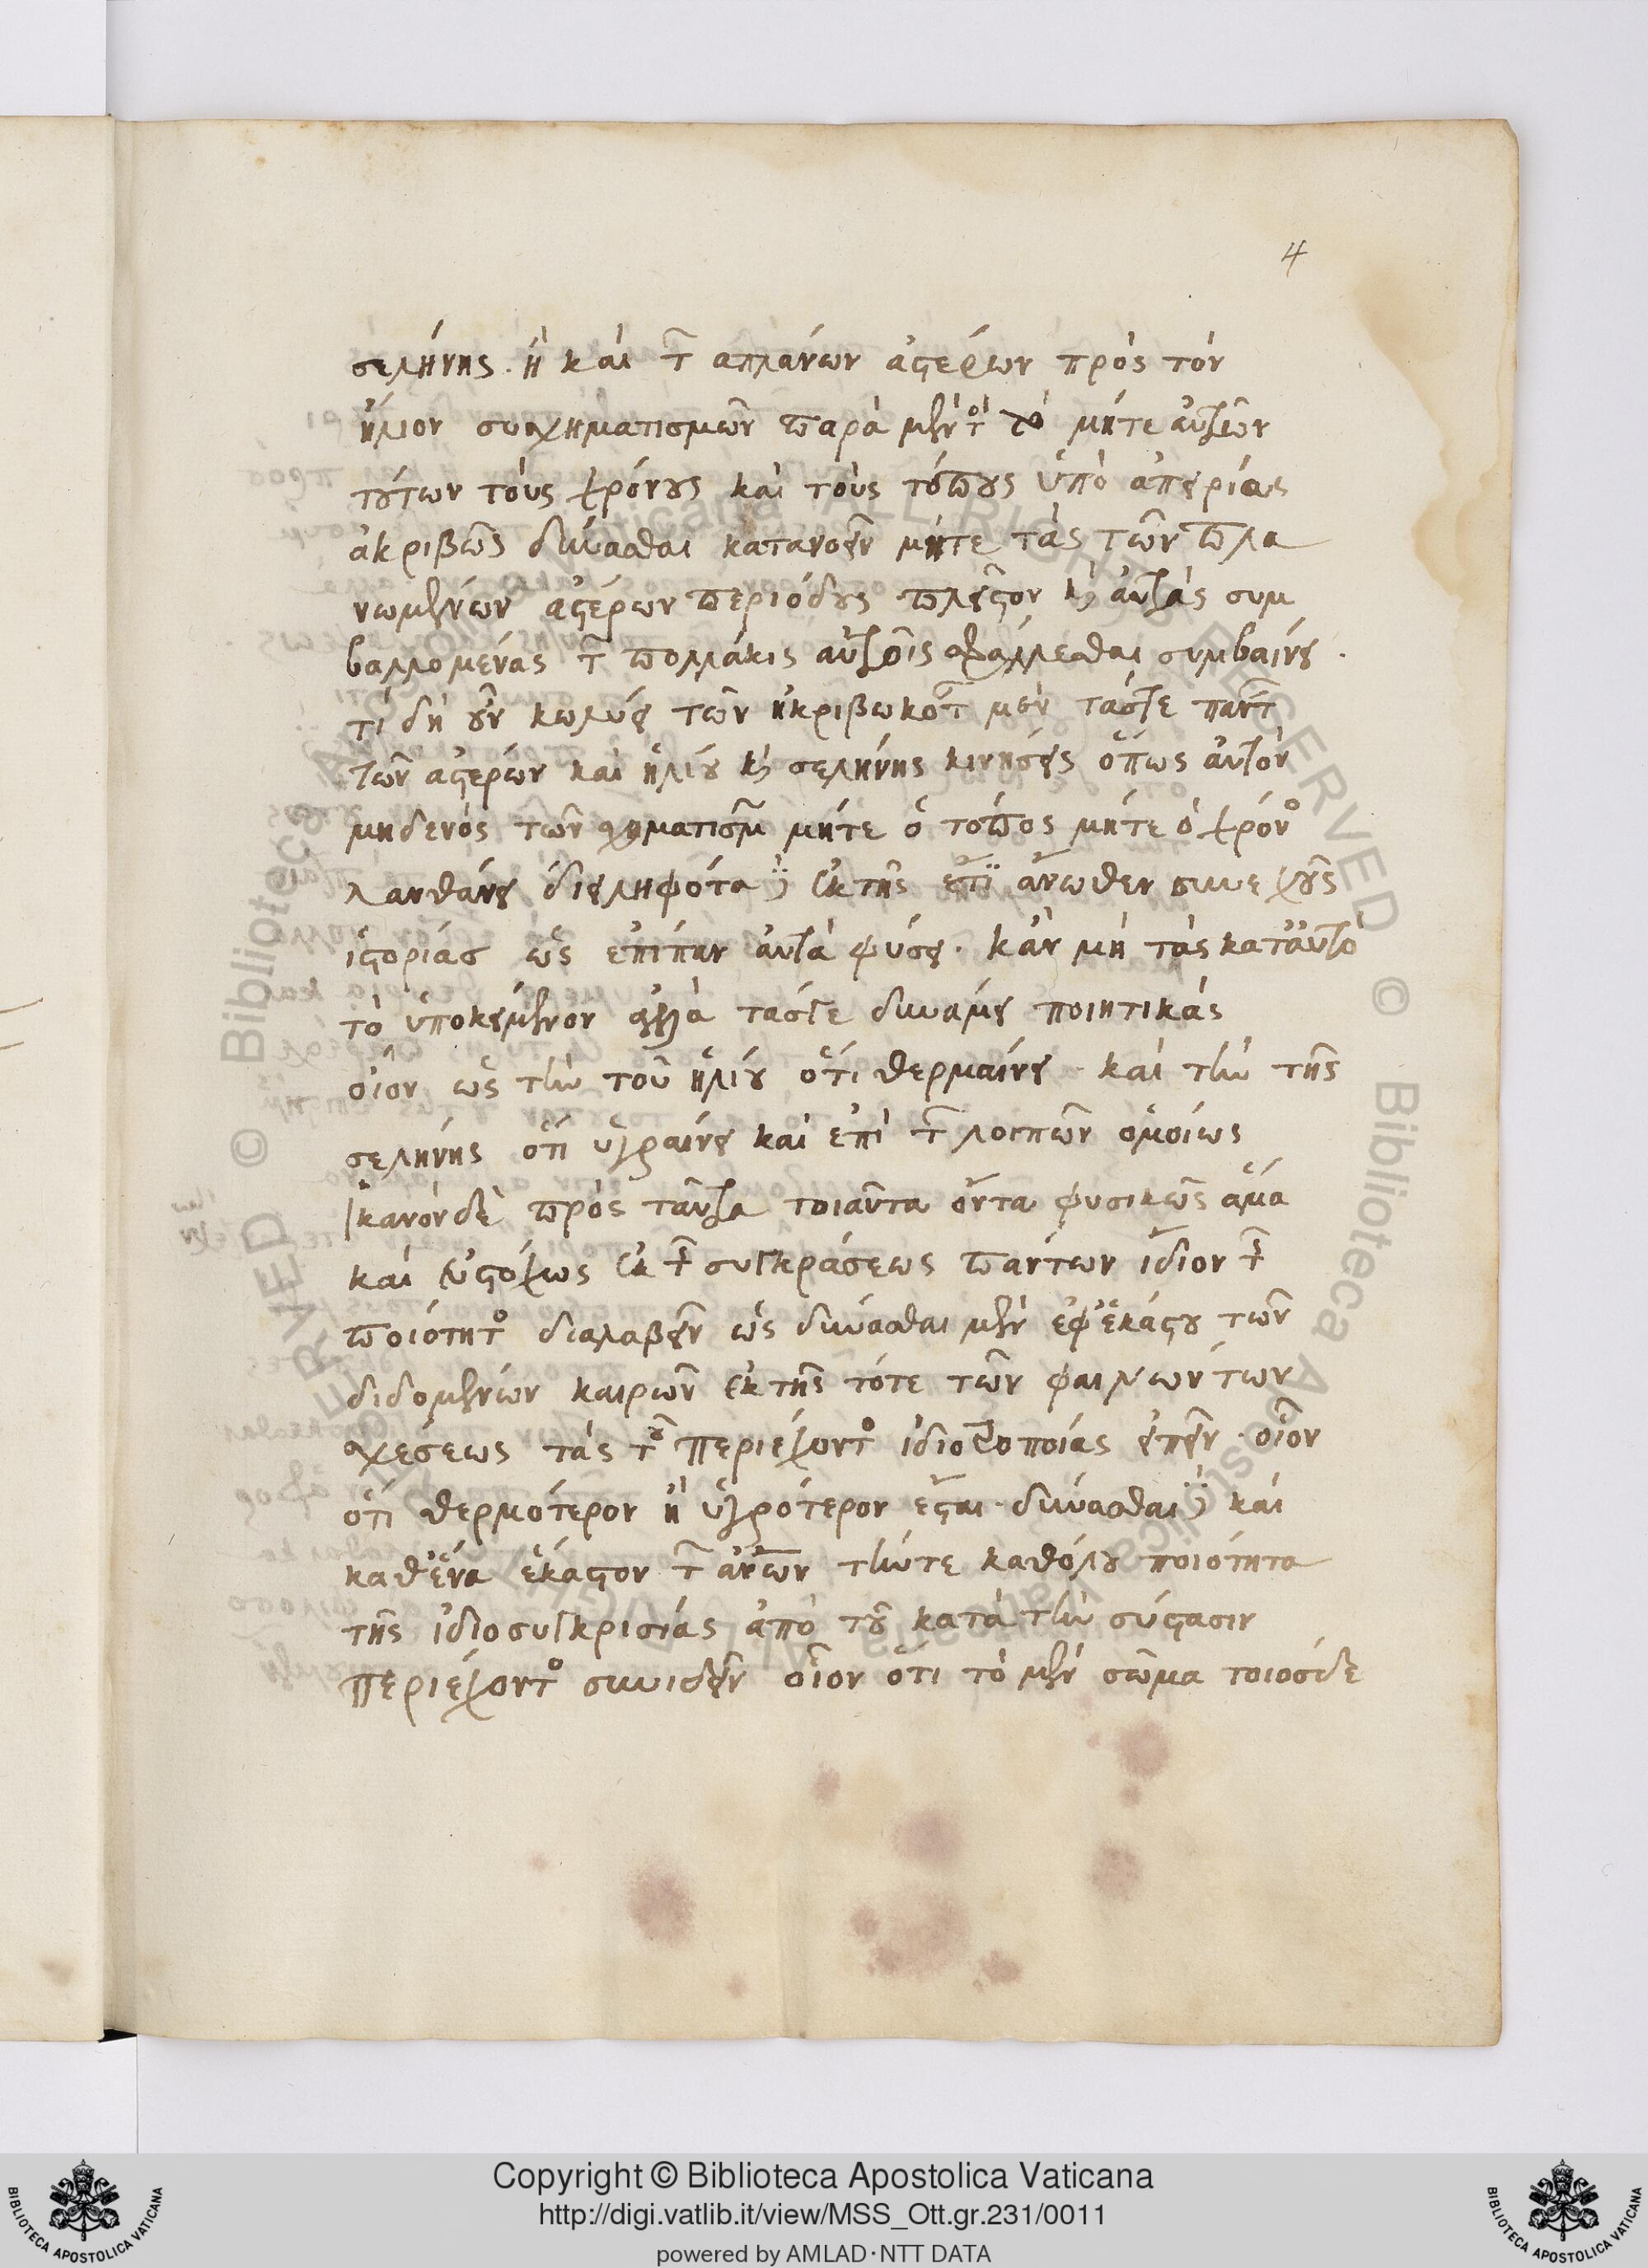 4
σελήνης. ἢ καὶ τ̃ απλανων ἀστέρων πρὸς τὸν
ἥλιον συσχηματισμῶν παρὰ μέντοι τὸ μήτε αὐτῶν
τούτων τοὺς χρόνους καὶ τοὺς τόπους ὑπὸ ἀπειρίας
ἀκριβῶς δύνασθαι κατανοεῖν μήτε τὰς τῶν πλα
νωμένων ἀστέρων περιόδους πλεῖστον κ̀ αὐτὰς συμ
βαλλομένας τ̃ πολλάκις αὐτοῖς σφάλλεσθαι συμβαίνει.
τί δὴ οὖν κωλύει τῶν ἠκριβωκότ μὲν τάς τε πάντ
τῶν ἀστέρων καὶ ἡλίου κ̀ σελήνης κινήσεις ὅπως αὐτὸν
μηδενὸς τῶν σχηματισμ̃ μήτε ὁ τόπος μήτε ὁ χρόνος
λανθάνει διειληφότα δὲ ἐκ τῆς ἔτι ἄνωθεν συνεχοῦς
ἱστορίας ὡς ἐπίπαν αὐτὰ φύσει. κἂν μὴ τὰς κατ' αὐτὸ
τὸ ὑποκείμενον ἀλλὰ τάς τε δυνάμει ποιητικὰς
οἷον ὡς τὴν τοῦ ἡλίου ὅτι θερμαίνει. καὶ τὴν τῆς
σελήνης ὅτι ὑγραίνει καὶ ἐπὶ τ̃ λοιπῶν ὁμοίως
ἱκανὸν δὲ πρὸς ταῦτα τοιαῦτα ὄντα φυσικῶς ἅμα
καὶ εὐστόχως ἐκ τ̃ συγκράσεως πάντων ἴδιον τ̃
ποιότητος διαλαβεῖν ὡς δύνασθαι μὲν ἐφ' ἑκάστου τῶν
διδομένων καιρῶν ἐκ τῆς τότε τῶν φαινωντων
σχέσεως τὰς τοῦ περιέχοντος ἰδιοτοποίας εἰπεῖν. οἷον
ὅτι θερμότερον ἢ ὑγρότερον ἔσται. δύνασθαι δὲ καὶ
καθ' ἕνα ἕκαστον τ̃ ἀνων τήν τε καθόλου ποιότητα
τῆς ἰδιοσυγκρισίας ἀπὸ τοῦ κατὰ τὴν σύστασιν
περιέχοντος συνιδεῖν οἷον ὅτι τὸ μὲν σῶμα τοιόσδε
Copyright © Biblioteca Apostolica Vaticana
http://digi.vatlib.it/view/MSS_Ott.gr.231/0011
powered by AMLAD·NTT DATA
BIBLIOTECA APOSTOLICA VATICANA
BIBLIOTECA APOSTOLICA VATICANA